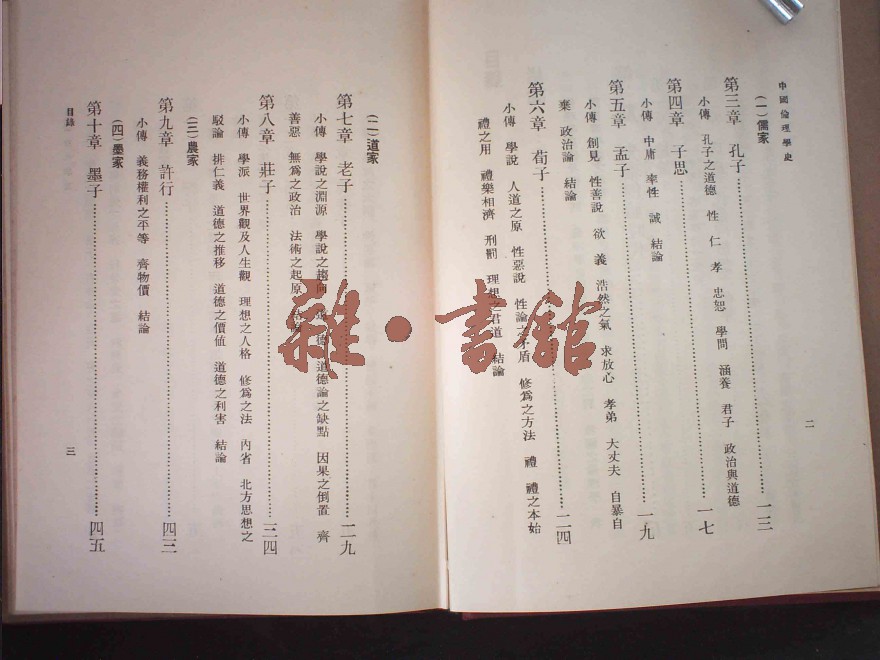 中國倫理學史
(一)儒家
第三章 孔子……一三
小傳 孔子之道德 性 仁 孝 忠恕 學問 涵養 君子 政治與道德
第四章 子思……一七
小傳 中庸 率性 誠 結論
第五章 孟子……一九
小傳 創見 性善說 欲 義 浩然之氣 求放心 孝弟 大丈夫 自暴自
棄 政治論 結論
第六章 荀子……二四
小傳 學說 人道之原 性惡說 性論之矛盾 修爲之方法 禮 禮之本始
禮之用 禮樂相濟 刑罰 理想之君道 結論
二
(二)道家
第七章 老子……二九
小傳 學說之淵源 學說之趨向 道德 道德論之缺點 因果之倒置 齊
善惡 無爲之政治 法術之起原 結論
第八章 莊子……三四
小傳 學派 世界觀及人生觀 理想之人格 修爲之法 內省 北方思想之
駁論 排仁義 道德之推移 道德之價値 道德之利害 結論
(三)農家
第九章 許行……四三
小傳 義務權利之平等 齊物價 結論
(四)墨家
第十章 墨子……四五
目錄
三
雜·書館